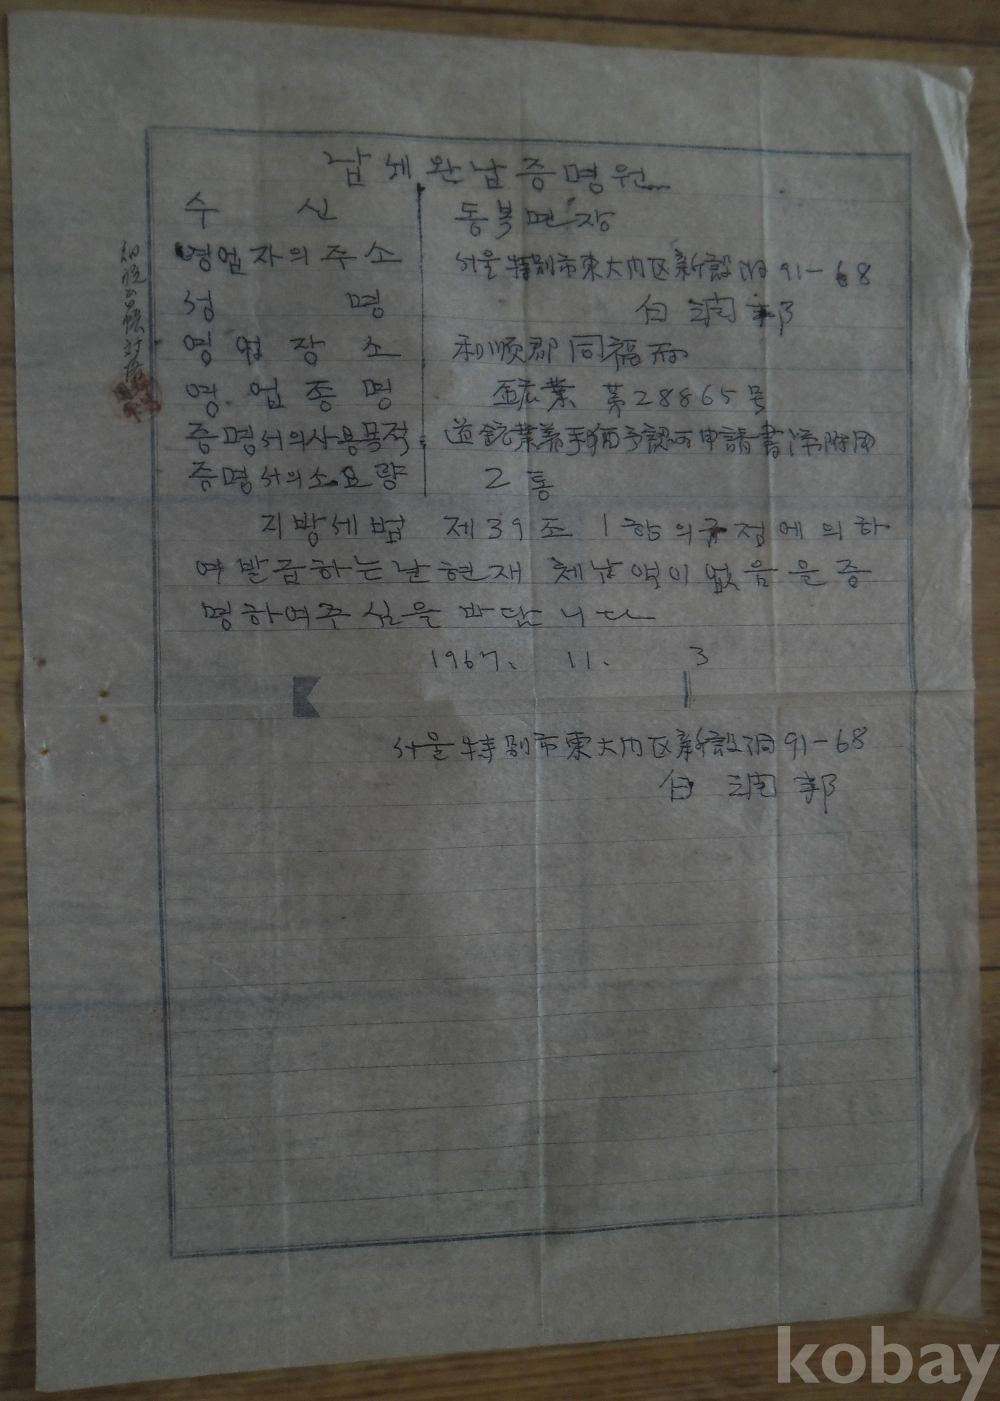 납세완납증명원
수 신 동복면장
영업자의 주소 서울特別市東大门区新設洞 91-68
성 명 白
영업장소 和順郡同福面
영업종명 鉱業 第28865号
증명서의사용목적 鉱業着手猶予認可申請書添附用
증명서의소요량 2통
지방세법 제39조 1항의규정에의하
여발급하는날현재 체납액이없음을증
명하여주심을 바랍니다
1967. 11. 3
서울特別市東大门区新設洞 91-68
白
kobay